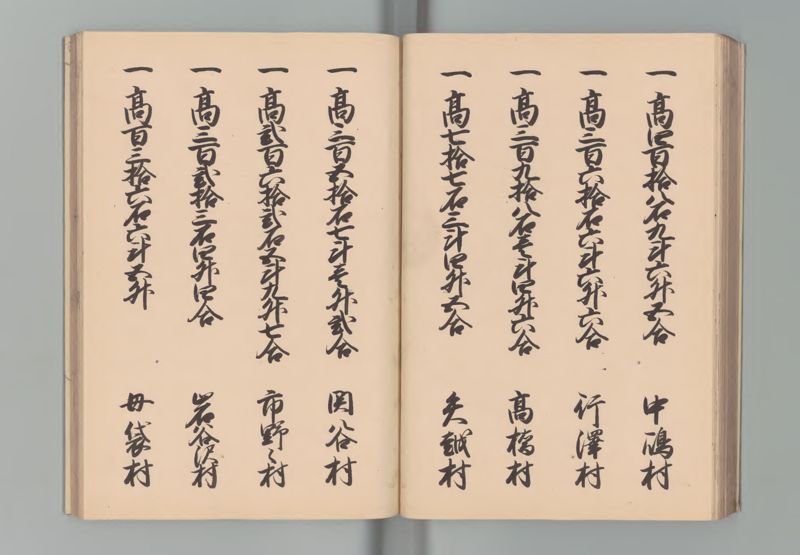 一高四百拾八石九斗六升五合 中鴫村
一高三百六拾石六斗六升六合 行澤村
一高三百九拾八石壱斗四升六合 高橋村
一高七拾七石三斗四升五合 矢越村
一高三百五拾石七斗壱升弐合 関谷村
一高弐百六拾弐石五斗九升七合 市野々村
一高三百弐拾三石四升四合 岩谷沢村
一高百三拾六石六斗五升 母袋村